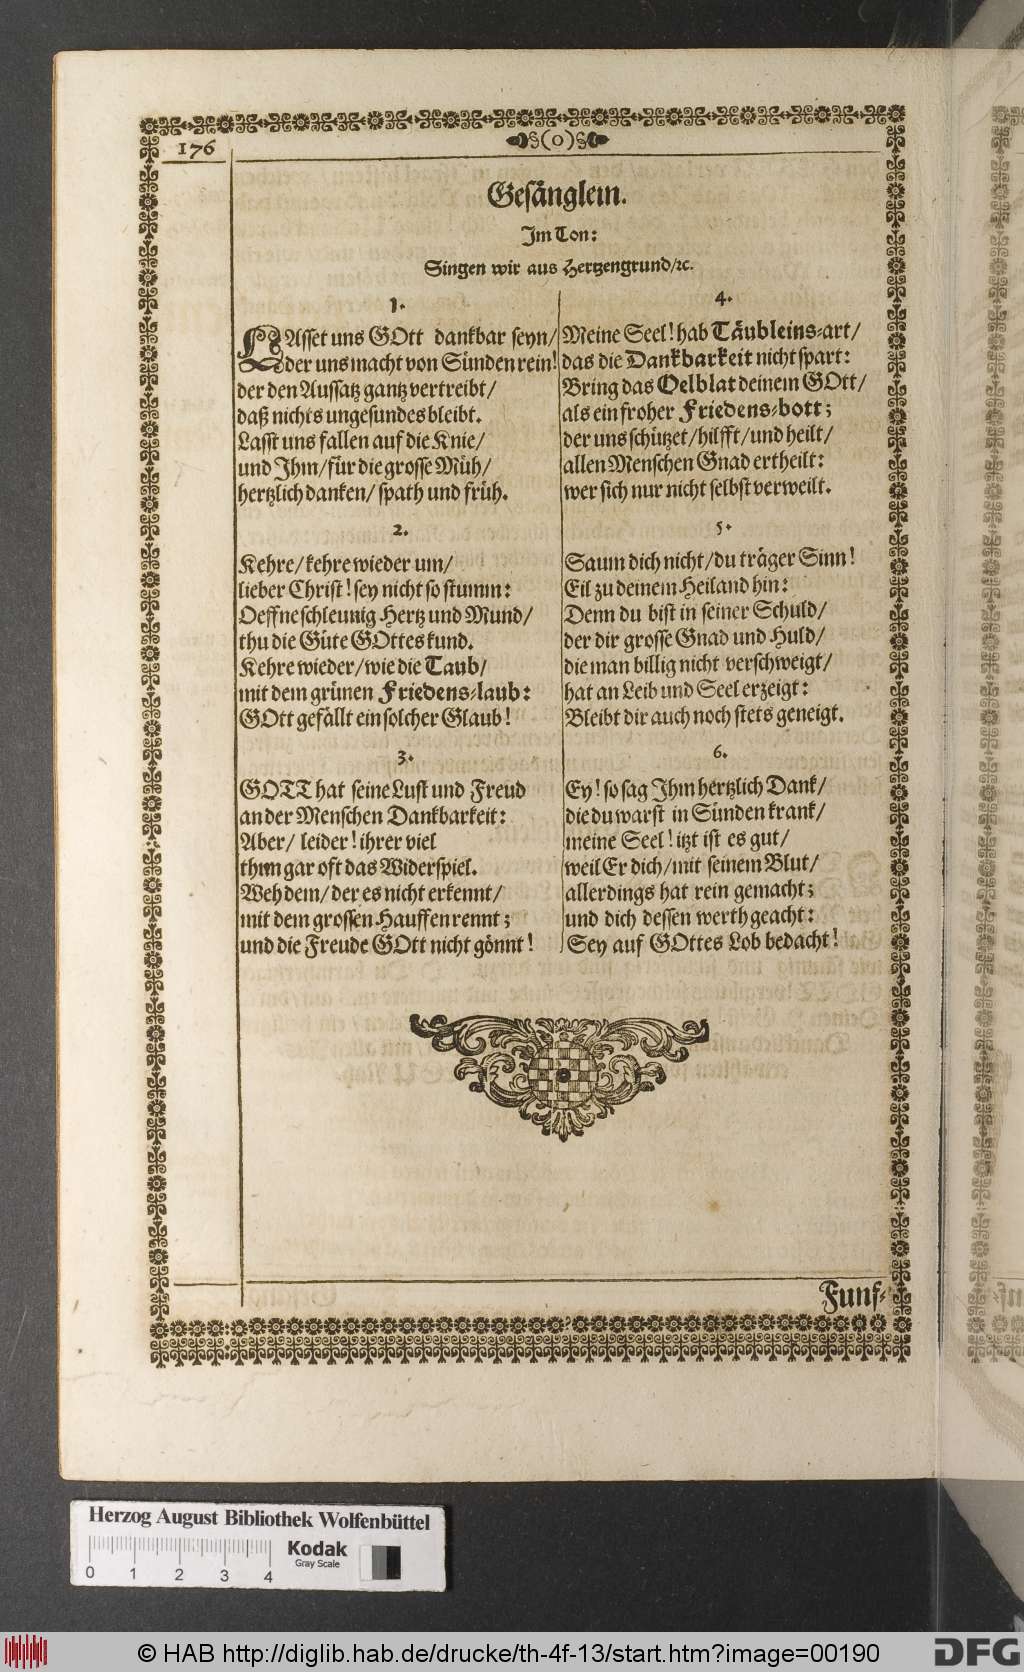 176
§(0)§
Gesänglein.
Im Ton:
Singen wir aus Hertzengrund/ꝛc.
1.
LAsset uns GOtt dankbar seyn/
der uns macht von Sünden rein!
der den Aussatz gantz vertreibt/
daß nichts ungesundes bleibt.
Lasst uns fallen auf die Knie/
und Ihm/für die grosse Müh/
hertzlich danken/ spath und früh.
2.
Kehre/kehre wieder um/
lieber Christ! sey nicht so stumm:
Oeffne schleunig Hertz und Mund/
thu die Güte GOttes kund.
Kehre wieder/wie die Taub/
mit dem grünen Friedens-laub:
GOtt gefällt ein solcher Glaub!
3.
GOTT hat seine Lust und Freud
an der Menschen Dankbarkeit:
Aber/ leider! ihrer viel
thun gar oft das Widerspiel.
Weh dem/der es nicht erkennt/
mit dem grossen Hauffen rennt;
und die Freude GOtt nicht gönnt!
4.
Meine Seel! hab Täubleins-art/
das die Dankbarkeit nicht spart:
Bring das Oelblat deinem GOtt/
als ein froher Friedens-bott;
der uns schützet/hilfft/und heilt/
allen Menschen Gnad ertheilt:
wer sich nur nicht selbst verweilt.
5.
Saum dich nicht/du träger Sinn!
Eil zu deinem Heiland hin:
Denn du bist in seiner Schuld/
der dir grosse Gnad und Huld/
die man billig nicht verschweigt/
hat an Leib und Seel erzeigt:
Bleibt dir auch noch stets geneigt.
6.
Ey! so sag Ihm hertzlich Dank/
die du warst in Sünden krank/
meine Seel! itzt ist es gut/
weil Er dich/mit seinem Blut/
allerdings hat rein gemacht;
und dich dessen werth geacht:
Sey auf GOttes Lob bedacht!
Funf-
Herzog August Bibliothek Wolfenbüttel
Kodak
Gray Scale
0 1 2 3 4
© HAB http://diglib.hab.de/drucke/th-4f-13/start.htm?image=00190
DFG